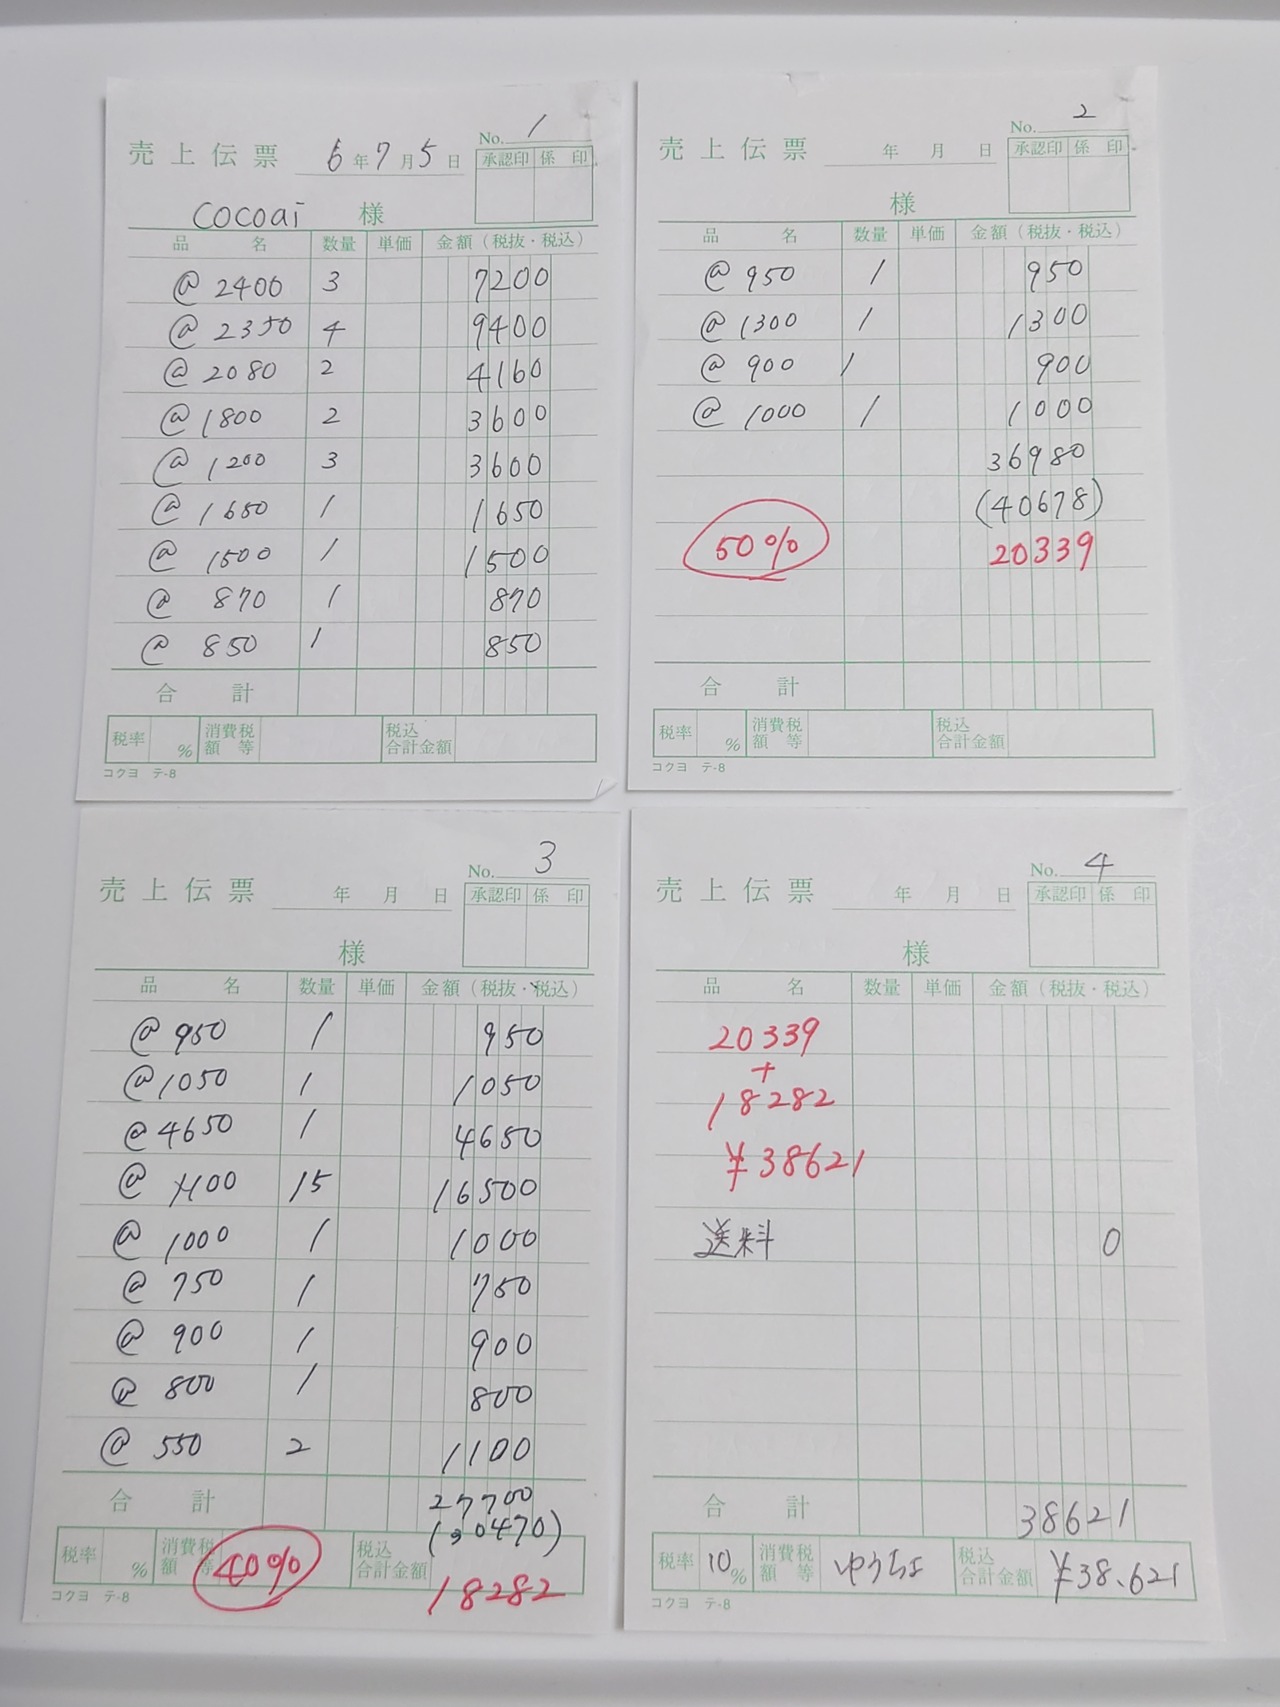 No. 1
売上伝票 6年7月5日
承認印 係印
cocoai 様
品名 数量 単価 金額(税抜・税込)
@ 2400 3 7200
@ 2350 4 9400
@ 2080 2 4160
@ 1800 2 3600
@ 1200 3 3600
@ 1650 1 1650
@ 1500 1 1500
@ 870 1 870
@ 850 1 850
合計
税率 % 消費税額等 税込合計金額
コクヨ テ-8
No. 2
売上伝票 年 月 日
承認印 係印
様
品名 数量 単価 金額(税抜・税込)
@ 950 1 950
@ 1300 1 1300
@ 900 1 900
@ 1000 1 1000
36980
(40678)
50% 20339
合計
税率 % 消費税額等 税込合計金額
コクヨ テ-8
No. 3
売上伝票 年 月 日
承認印 係印
様
品名 数量 単価 金額(税抜・税込)
@ 950 1 950
@ 1050 1 1050
@ 4650 1 4650
@ 1100 15 16500
@ 1000 1 1000
@ 750 1 750
@ 900 1 900
@ 800 1 800
@ 550 2 1100
合計 27700
(30470)
税率 % 消費税額等 40% 税込合計金額 18282
コクヨ テ-8
No. 4
売上伝票 年 月 日
承認印 係印
様
品名 数量 単価 金額(税抜・税込)
20339
+
18282
¥38621
送料 0
合計 38621
税率 10% 消費税額等 ゆうちょ 税込合計金額 ¥38.621
コクヨ テ-8